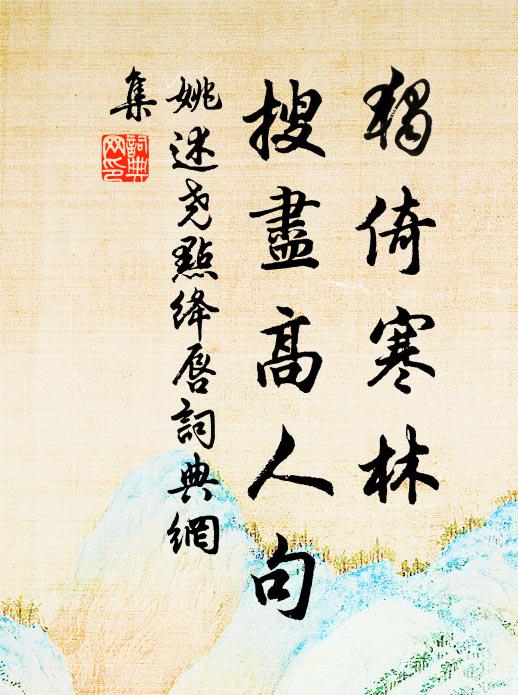 獨倚寒林
搜盡高人句
姚述堯點絳唇詞典網
集
詞典
网印